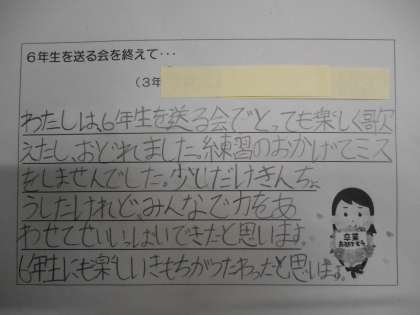 6年生を送る会を終えて・・・
（3年
わたしは、6年生を送る会でとっても楽しく歌
えたし、おどれました。練習のおかげでミス
をしませんでした。少しだけきんちょ
うしたけれど、みんなで力をあ
わせてせいいっぱいできたと思います。
6年生にも楽しいきもちがつたわったと思います。
卒業
おめでとう